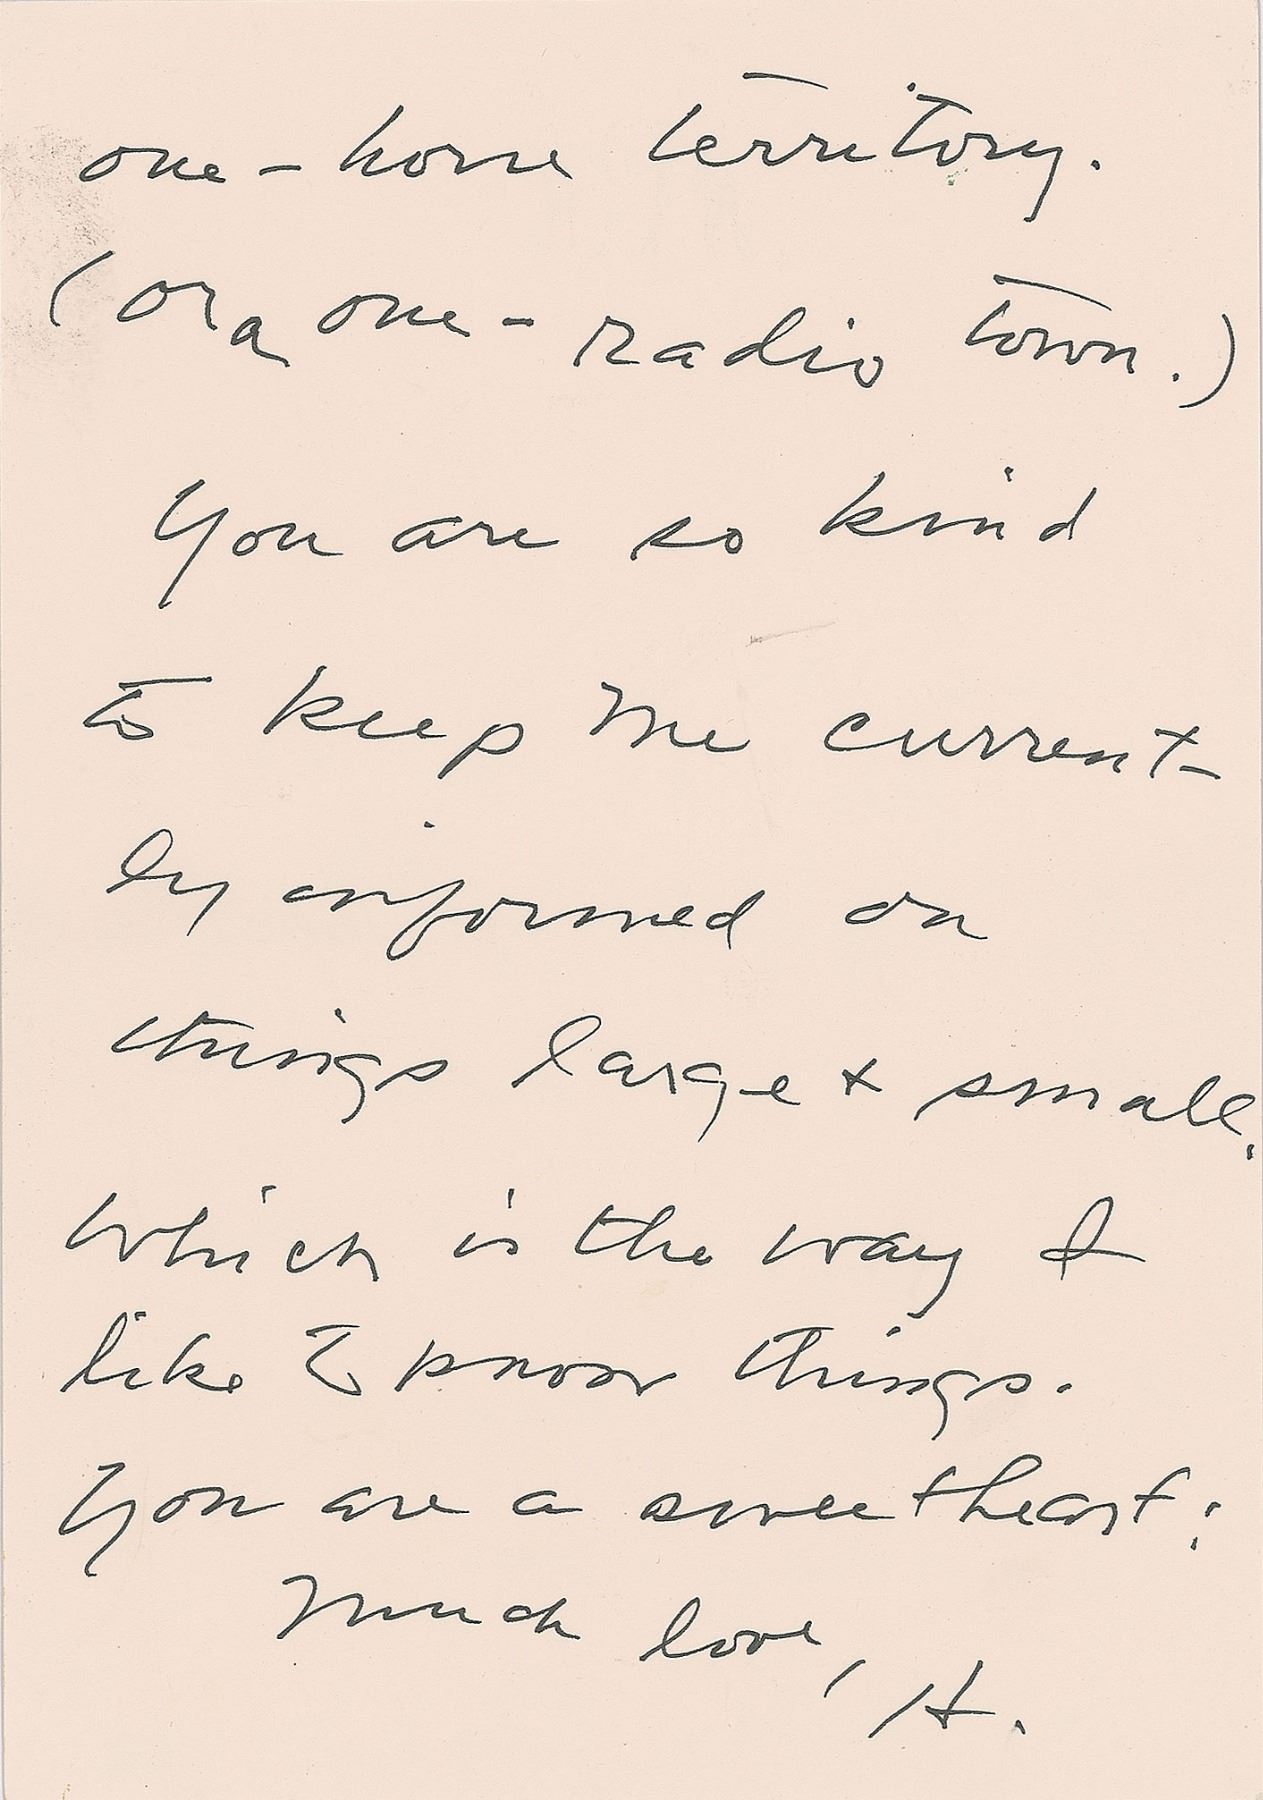 one-horse territory.
(or a one-radio town.)
You are so kind
to keep me current-
ly informed on
things large + small.
Which is the way I
like to know things.
You are a sweetheart;
Much love, H.